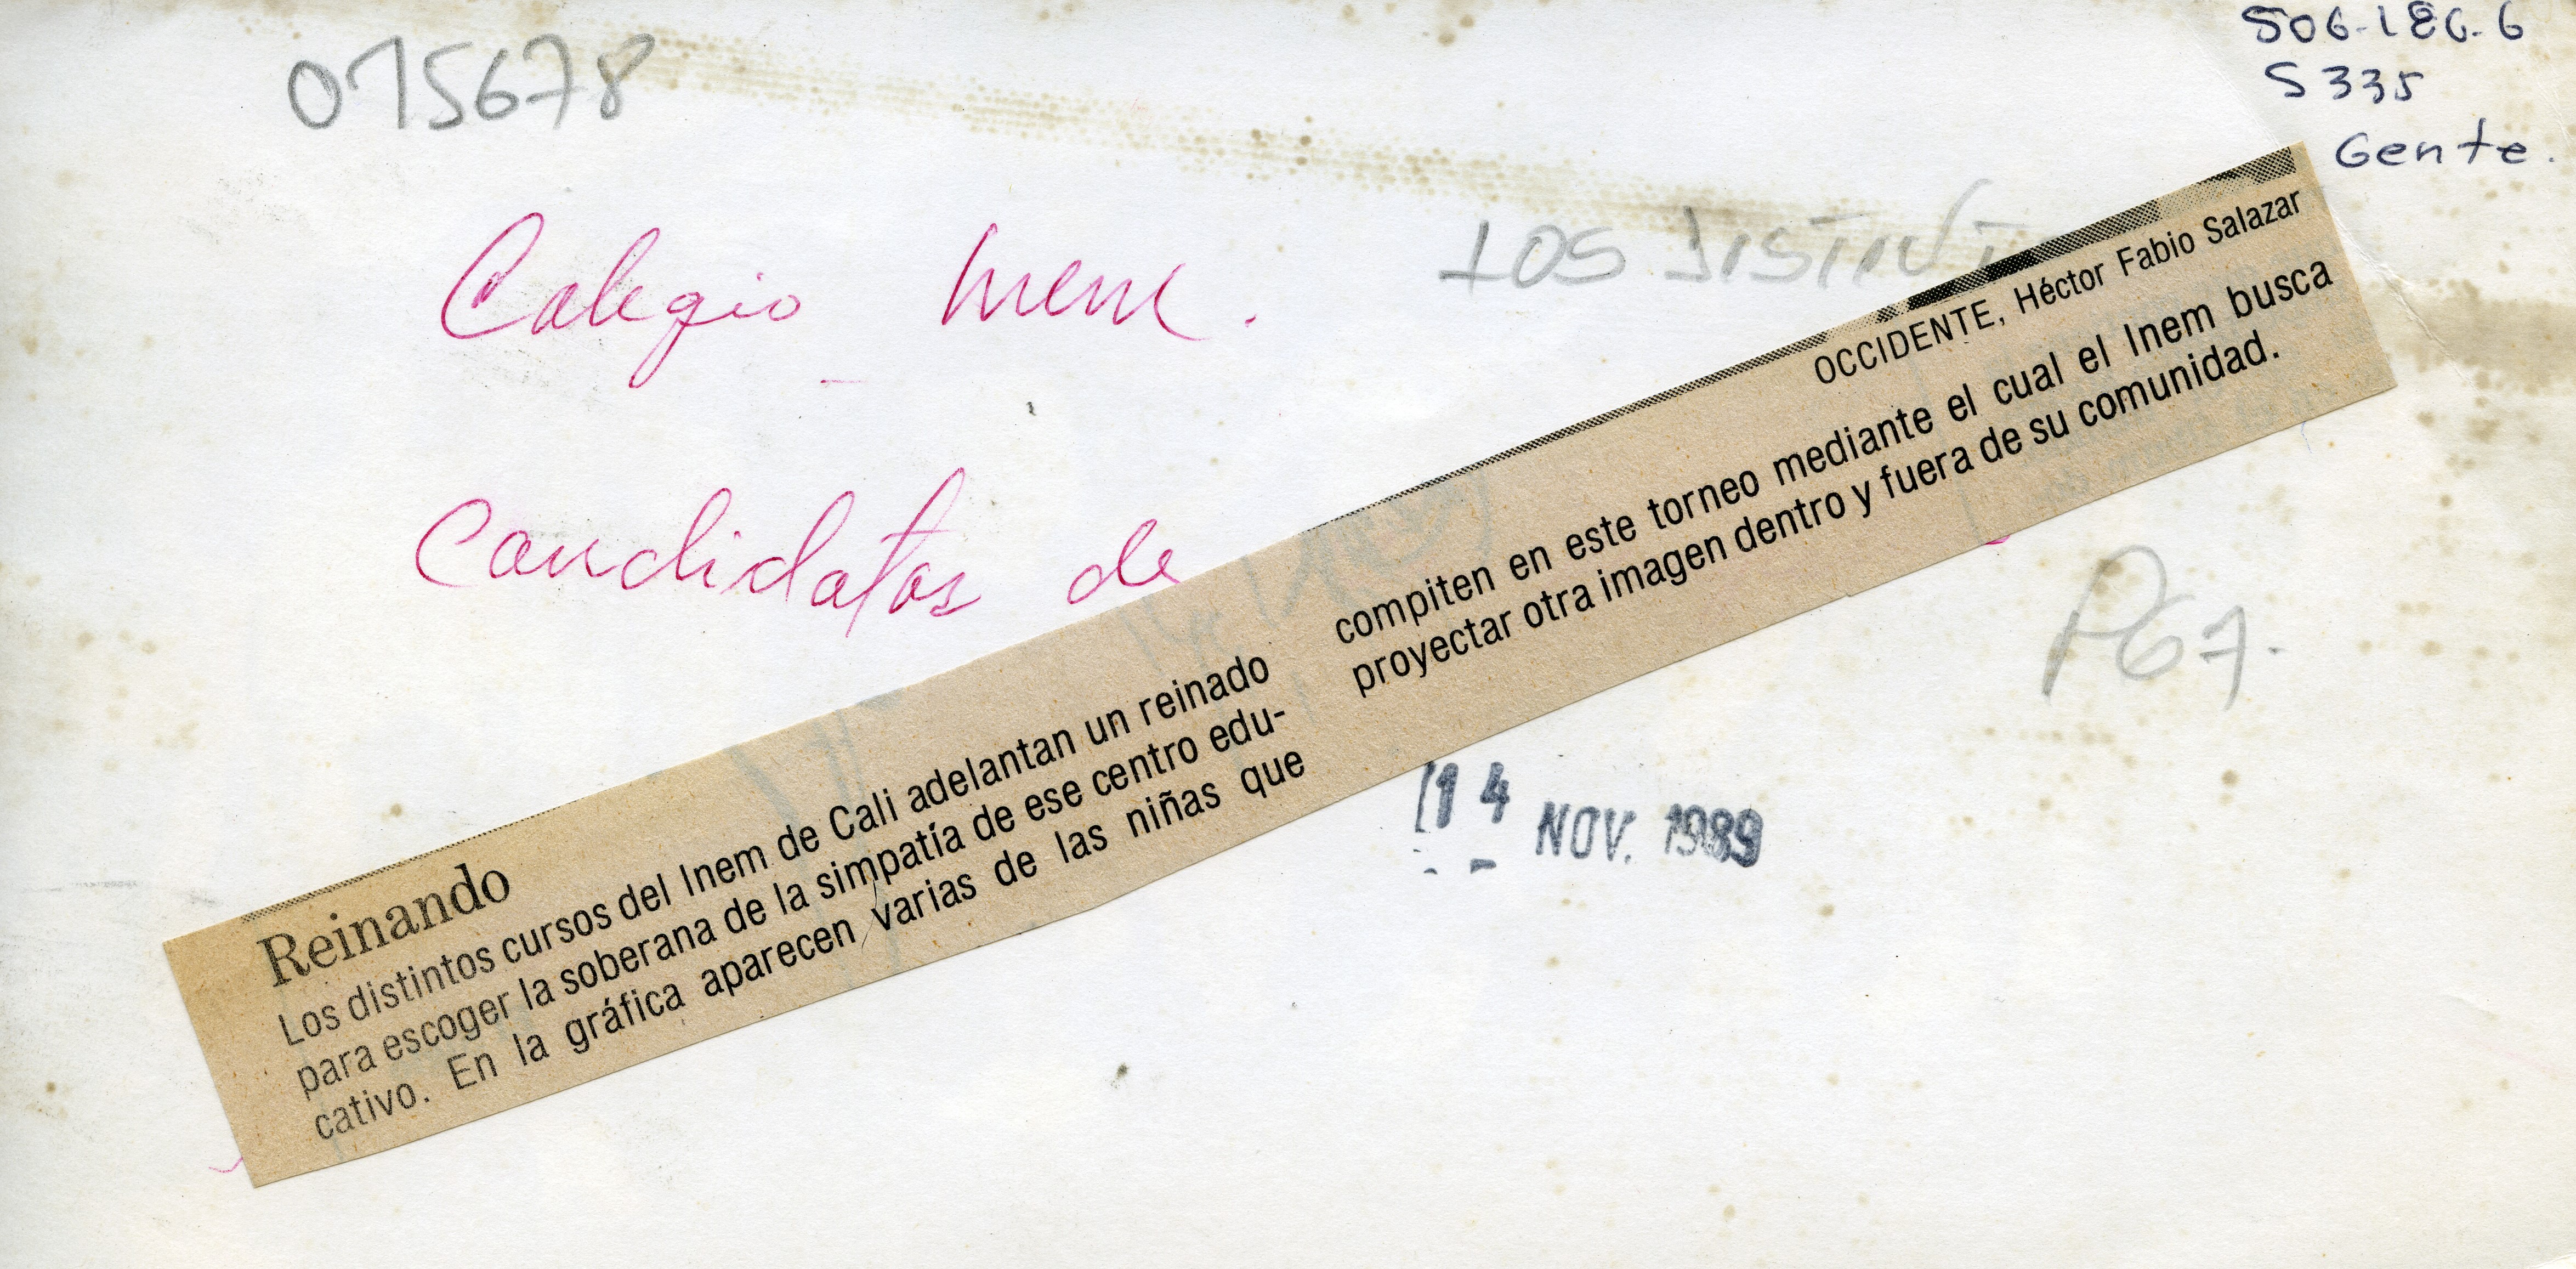 015678
506-186-6
S 335
Gente.
Colegio Inem.
LOS DISTINT
Candidatas de
OCCIDENTE, Héctor Fabio Salazar
Reinando
Los distintos cursos del Inem de Cali adelantan un reinado
para escoger la soberana de la simpatía de ese centro edu-
cativo. En la gráfica aparecen varias de las niñas que
compiten en este torneo mediante el cual el Inem busca
proyectar otra imagen dentro y fuera de su comunidad.
P67.
14 NOV. 1989